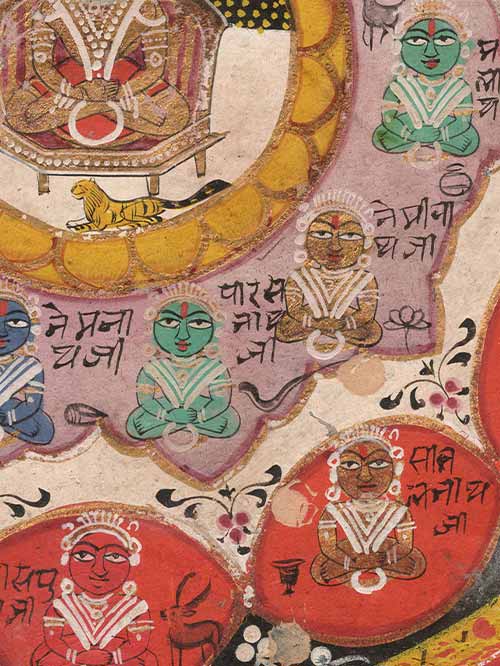 म
थ
नेमीना
थजी
पारस
नाथ
जी
नेमना
थजी
लनाथ
जी
ासपु
जी